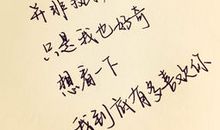 并非
只是我也好奇
想看一下
我到底有多喜欢你